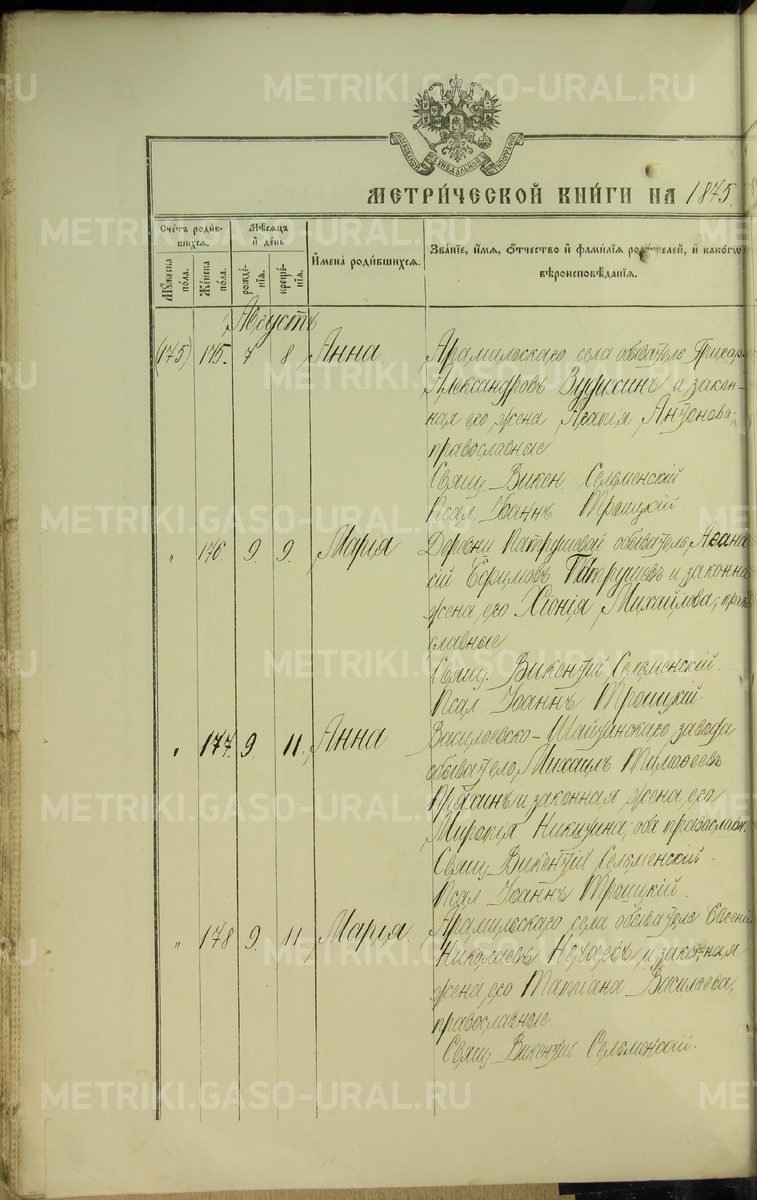 METRIKI.GASO-URAL.RU
МОСКОВСКОЙ СѴНОДАЛЬНОЙ ТИПОГРАФІИ
МЕТРИ́ЧЕСКОЙ КНИ́ГИ НА 1875.
Сче́тъ роди́в-
шихся.
Мѣ́сяцъ
и҆ де́нь
И҆мена̀ роди́вшихся.
Зва́нїе, и҆́мѧ, ѻ҆́тчество и҆ фами́лїѧ роди́телей, и҆ како́гѡ
вѣроисповѣ́данїѧ.
Мꙋ́жеска по́ла.
Же́нска по́ла.
рожде́нїѧ.
креще́нїѧ.
Августъ
(175) 175. 7 8 Анна Арамильскаго села обыватель
Александровъ и закон-
ная его жена Агапія Антонова;
православные.
Свящ. Викен. Селеменскій
Псал. Іоаннъ Троицкій.
" 176. 9. 9. Марія Деревни Патрушевой обыватель Афана
сій Ефимовъ Патрушевъ и законна
жена его Хіонія Михайлова; прав
славные
Свящ. Викентій Селеменскій.
Псал. Іоаннъ Троицкій.
" 177. 9. 11. Анна Васильевско-Шайтанскаго завода
обыватель Михаилъ Тимофеевъ
и законная жена его
Никитина; оба православн.
Свящ. Викентій Селеменскій.
Псал. Іоаннъ Троицкій.
" 178 9. 11. Марія. Арамильскаго села обыватель Евсеній
Николаевъ и законная
жена его Татіана Васильева,
православные
Свящ. Викентій Селеменскій.